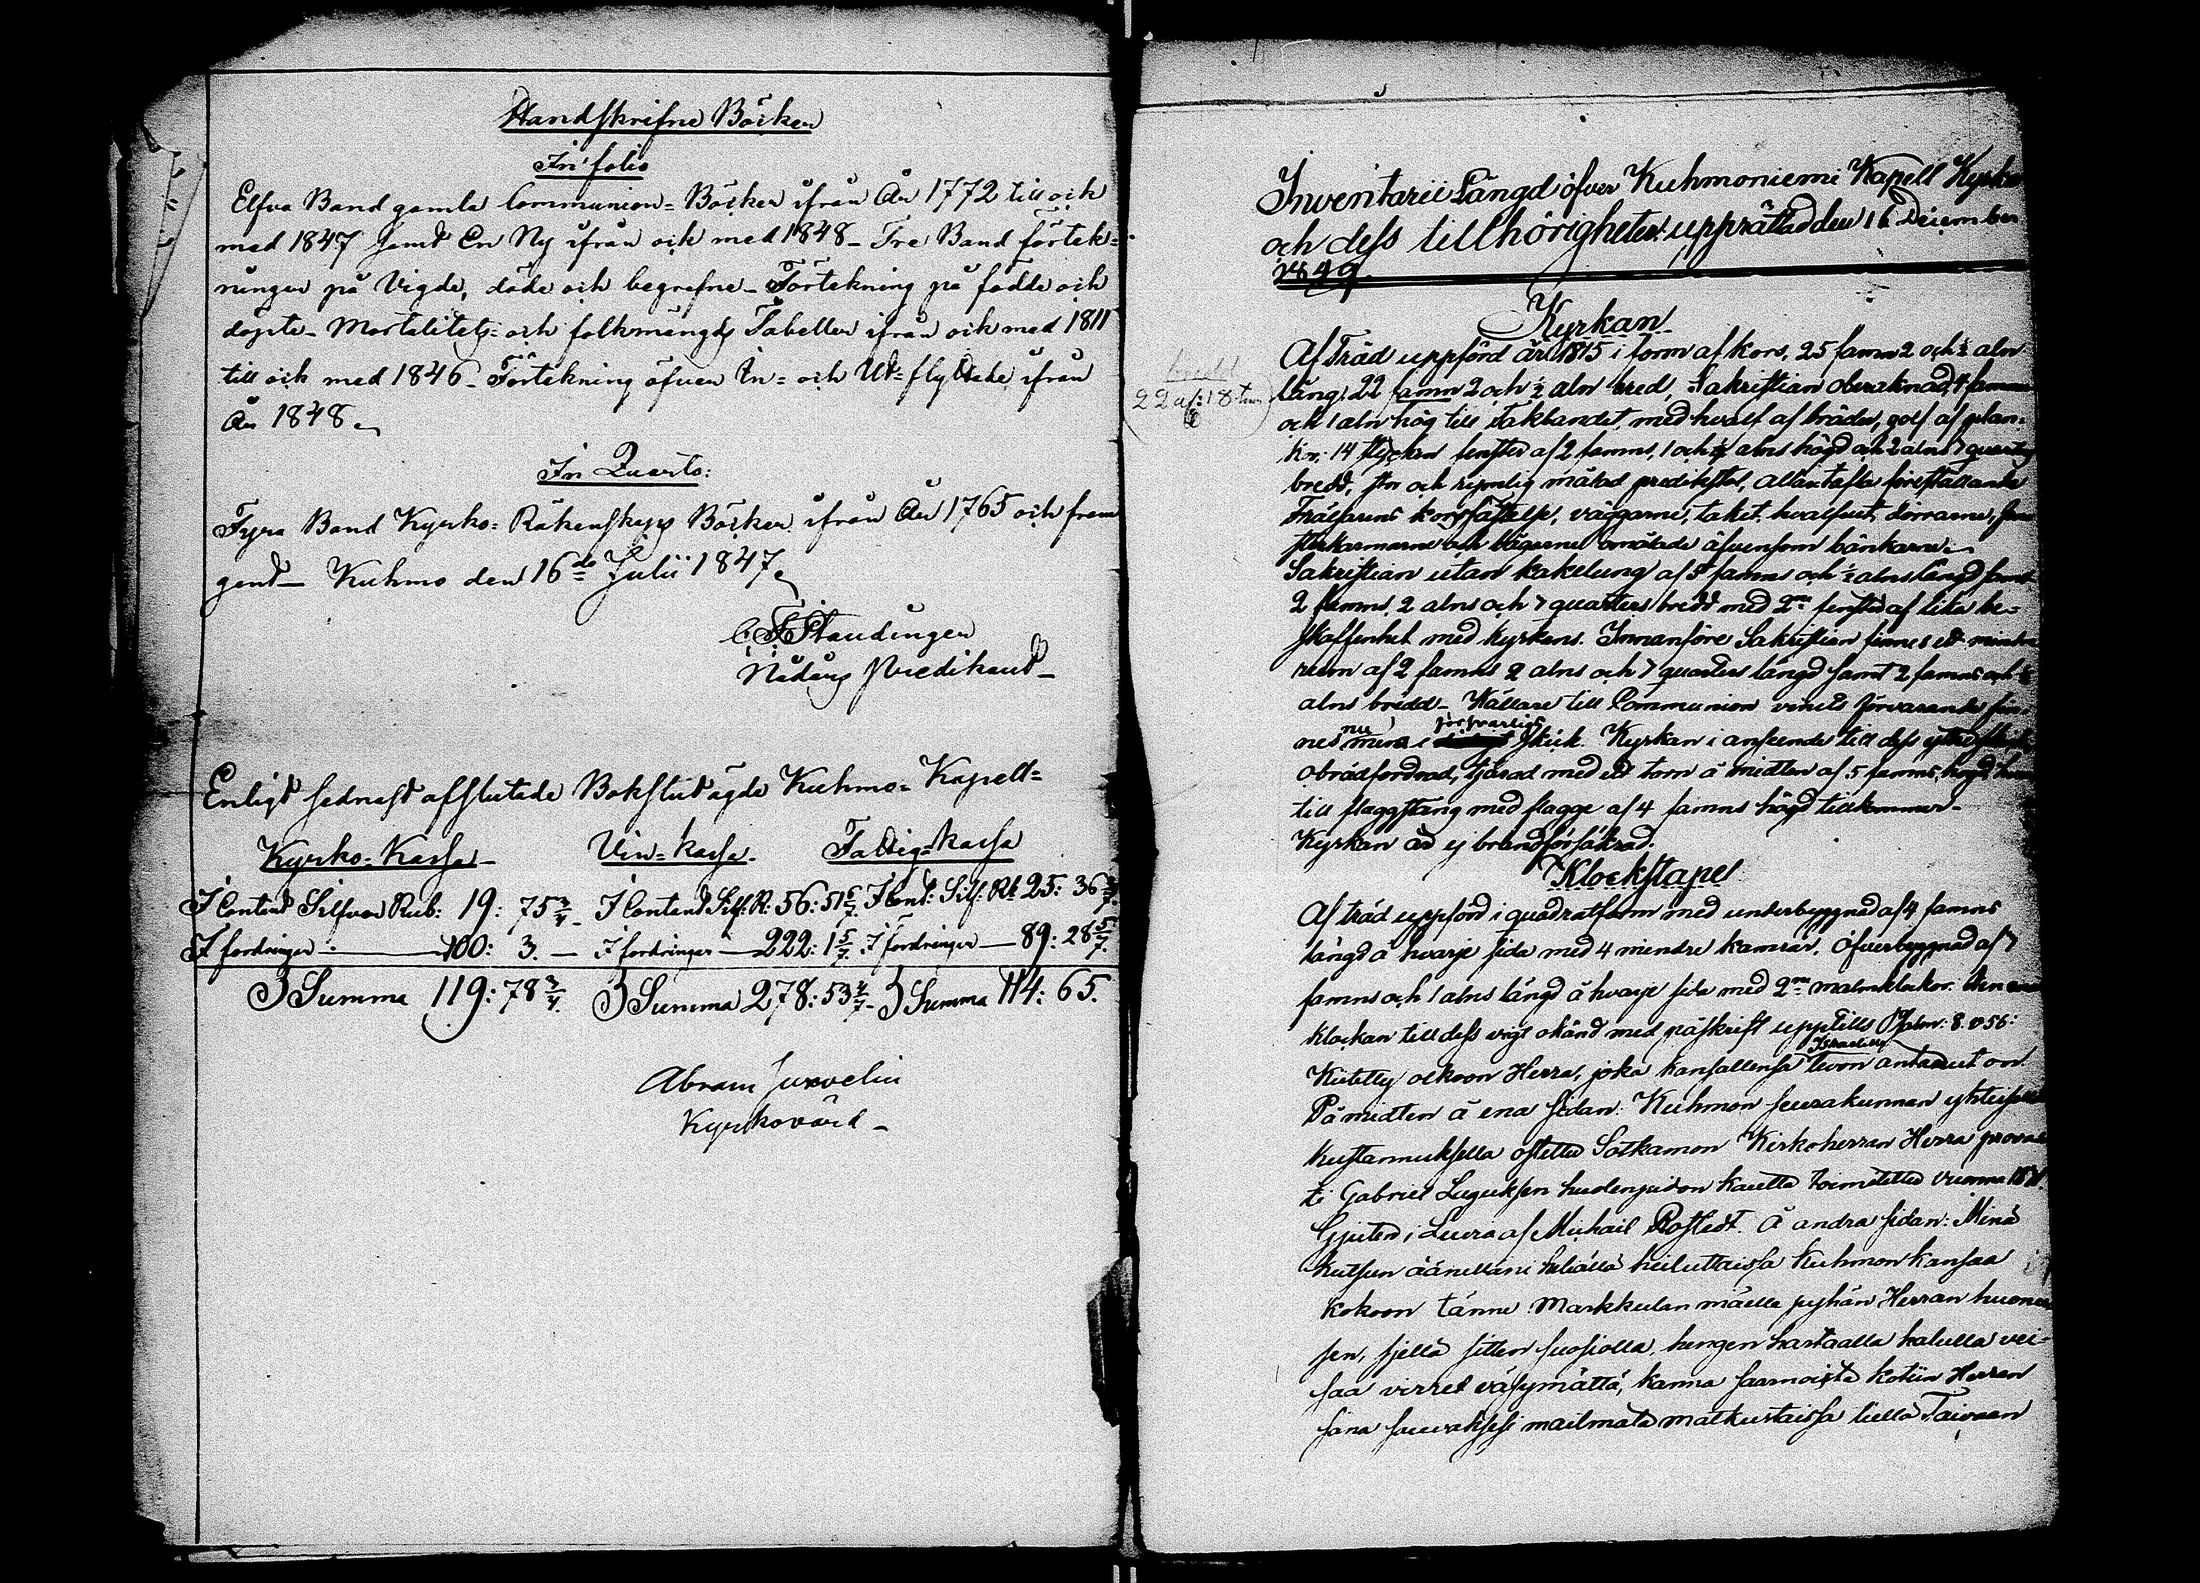 Handskrifne Böcker
In folio
Elfva Band gamla Communion-Böcker ifrån År 1772 till och
med 1847 samt En Ny ifrån och med 1848 - Tre Band förtek-
ningar på Vigde, döde och begrafne - Förtekning på födde och
döpte - Mortalitets- och folkmängds Tabeller ifrån och med 1811
till och med 1846 - Förtekning öfver In- och Ut-flyttade ifrån
År 1848.
In Quarto:
Fyra Band Kyrko-Räkenskaps Böcker ifrån År 1765 och fram
gent - Kuhmo den 16de Julii 1847.
Staudinger
Nådårs Predikant -
Enligt sednast afslutade Bokslut ägde Kuhmo-Kapell-
Kyrko-Kassa - Vin-kassa. Fattig-kassa
I Contant Silfver Rub: 19: 75 3/7 - I Contant Silf: R: 56: 51 6/7. I Cont: Silf: Rb 25: 36 2/7.
I fordringar - 100: 3. - I fordringar - 222: 1 5/7. I fordringar - 89: 28 5/7.
Summa 119: 78 3/7. Summa 278: 53 4/7 - Summa 114: 65.
Abram Juvelin
Kyrkovärd -
Inventarii Längd öfver Kuhmoniemi Kapell Kyrka
och dess tillhörigheter: upprättad den 16 December
1849.
Kyrkan
Af Träd uppförd år 1815 i form af kors, 25 famn 2 och ½ aln
lång, 22 famn 2 och ½ aln bred, Sakristian oberäknad, 4 famnar
och 1 aln hög till takbandet, med hvalf af bräder, golf af plan-
kor. 14 stycken fenster af 2 famns, 1 och ½ alns högd och 2 alns 7 quarters
bredd, stor och rymlig målad predikstol, altartafla föreställande
Frälsarens korsfästelse, väggarne, taket, hvalfvet, dörrarne, fen-
sterkarmarne och bågarne omålade äfvensom bänkarne.
Sakristian utan kakelung af 5 famns och ½ alns längd samt
2 famns, 2 alns och 7 quarters bredd med 2ne fenster af lika be-
skaffenhet med kyrkans. Innanföre Sakristian finnes ett mindre
rum af 2 famns 2 alns och 7 quarters längd samt 2 famns och ½
alns bredd - Källare till Communion vinets förvarande fin-
nes numera i försvarligt skick. Kyrkan i anseende till dess yttre
obrädfordrad, tjärad med ett torn å midten af 5 famns högd
till flaggstång med flagge af 4 famns högd tillkommer -
Kyrkan är ej brandförsäkrad.
bredd
22 af: 18 tum
Klockstapel
Af träd uppförd i quadratform med underbyggnad af 4 famns
längd å hvarje sida med 4 mindre kamrar, öfverbyggnad af 7
famns och 1 alns längd å hvarje sida med 2ne malmklockor. Den ena
klockan till dess vigt okänd med påskrift upptills Psalm: 8. v 56:
Kiitetty olkoon Herra, joka kansallensa Israelille levon antanut on!
På midten å ena sidan: Kuhmon seurakunnan yhteisellä
kustannuksella ostettu Sotkamon Kirkoherran Herra provas
ti Gabriel Laguksen huolenpidon kautta toimitettu vuonna
Gjuten i Luvia af Michail Rostedt. Å andra sidan: Minä
kutsun äänelläni heliällä heiluttaissa Kuhmon kansaa
kokoon tänne Markkulan mäelle pyhän Herran huonee
sen, sjellä sitten suosiolla, hengen hartaalla halulla vei-
saa virret väsymättä, kanna saarnoista kotiin Herran
sana sauvaksesi mailmata matkustaissa tiellä Taivaan